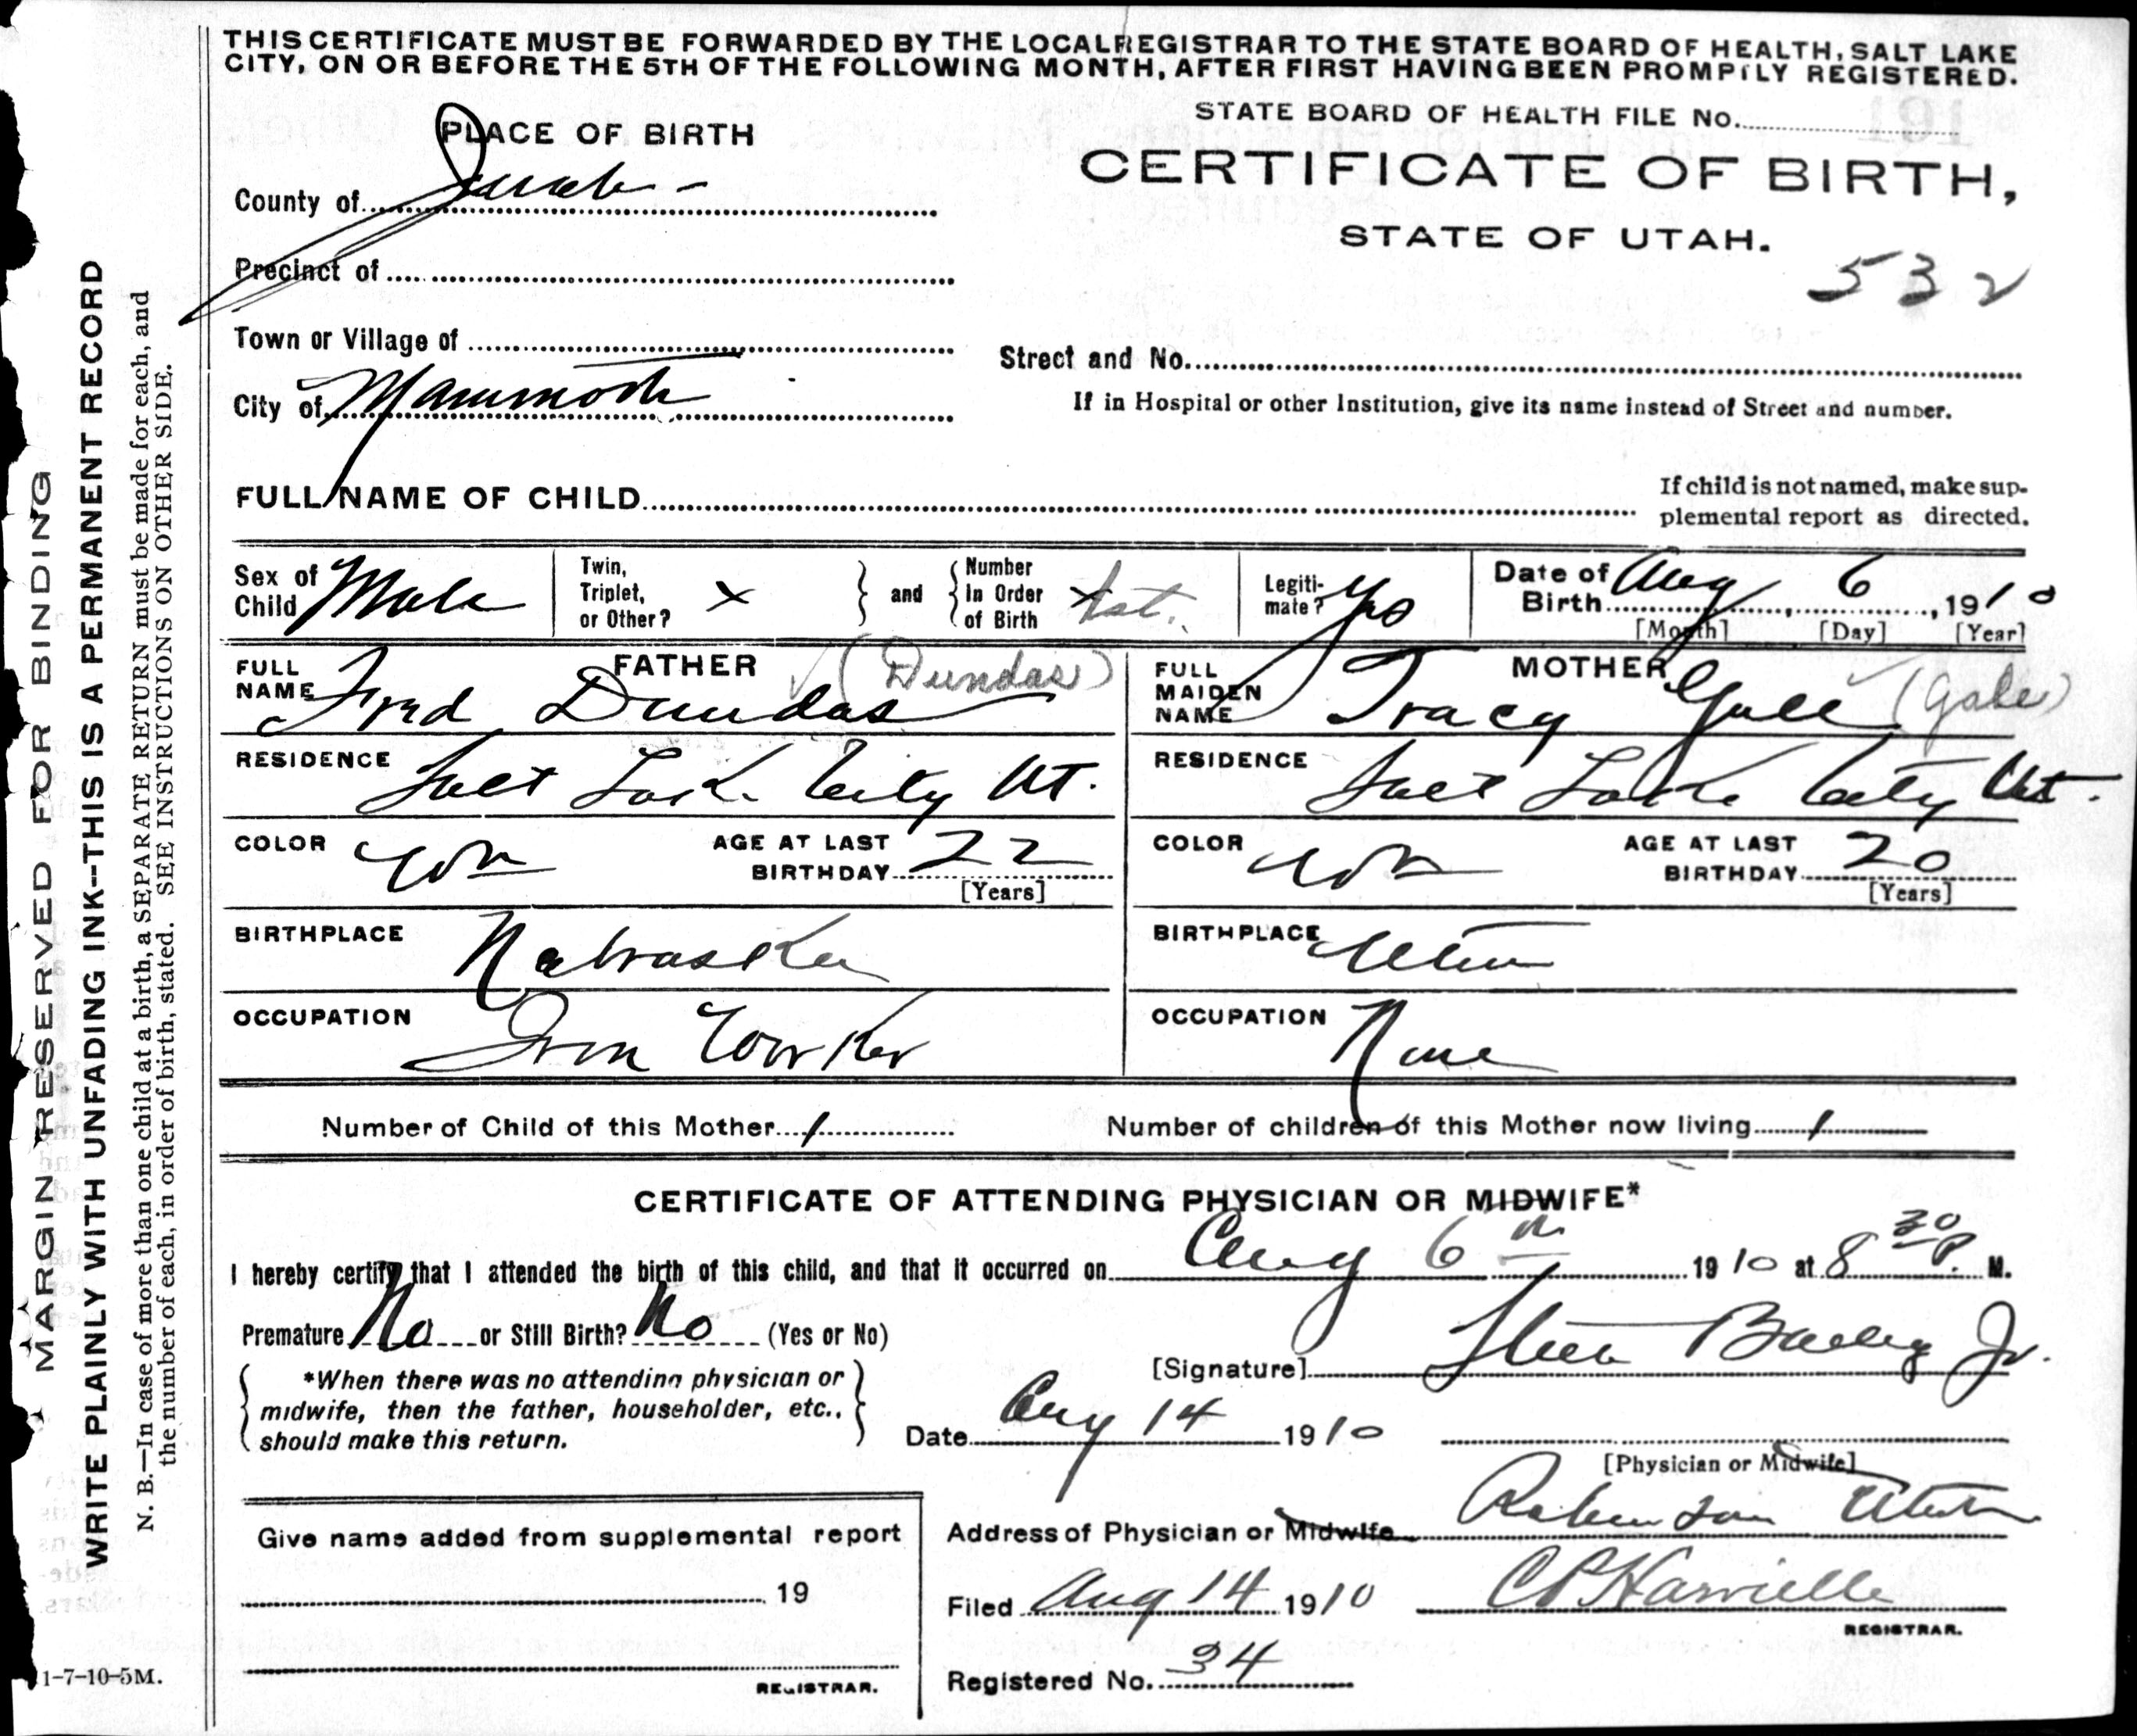 THIS CERTIFICATE MUST BE FORWARDED BY THE LOCAL REGISTRAR TO THE STATE BOARD OF HEALTH, SALT LAKE
CITY, ON OR BEFORE THE 5TH OF THE FOLLOWING MONTH, AFTER FIRST HAVING BEEN PROMPTLY REGISTERED.
STATE BOARD OF HEALTH FILE No.
PLACE OF BIRTH
CERTIFICATE OF BIRTH,
STATE OF UTAH.
532
County of Juab -
Precinct of
Town or Village of
Street and No.
City of Mammoth
If in Hospital or other Institution, give its name instead of Street and number.
FULL NAME OF CHILD
If child is not named, make sup-
plemental report as directed.
Sex of Child Male
Twin, Triplet, or Other? x
and
Number In Order of Birth x 1st.
Legiti-mate? Yes
Date of Birth Aug 6, 1910
[Month] [Day] [Year]
FATHER
FULL NAME Fred Dundas (Dundas)
MOTHER
FULL MAIDEN NAME Tracy Gale (Gale)
RESIDENCE Salt Lake City Ut.
RESIDENCE Salt Lake City Ut.
COLOR Wh AGE AT LAST BIRTHDAY 22 [Years]
COLOR Wh AGE AT LAST BIRTHDAY 20 [Years]
BIRTHPLACE Nebraska
BIRTHPLACE Utah
OCCUPATION Iron Worker
OCCUPATION None
Number of Child of this Mother 1
Number of children of this Mother now living 1
CERTIFICATE OF ATTENDING PHYSICIAN OR MIDWIFE*
I hereby certify that I attended the birth of this child, and that it occurred on Aug 6th 1910 at 8 30 P. M.
Premature No or Still Birth? No (Yes or No)
[Signature] Bailey Jr.
*When there was no attending physician or
midwife, then the father, householder, etc.,
should make this return.
Date Aug 14 1910
[Physician or Midwife]
Address of Physician or Midwife Robinson Utah
Give name added from supplemental report
19
REGISTRAR.
Filed Aug 14 1910
C P Harville
REGISTRAR.
Registered No. 34
MARGIN RESERVED FOR BINDING
WRITE PLAINLY WITH UNFADING INK--THIS IS A PERMANENT RECORD
N. B.—In case of more than one child at a birth, a SEPARATE RETURN must be made for each, and
the number of each, in order of birth, stated. SEE INSTRUCTIONS ON OTHER SIDE.
1-7-10-5M.